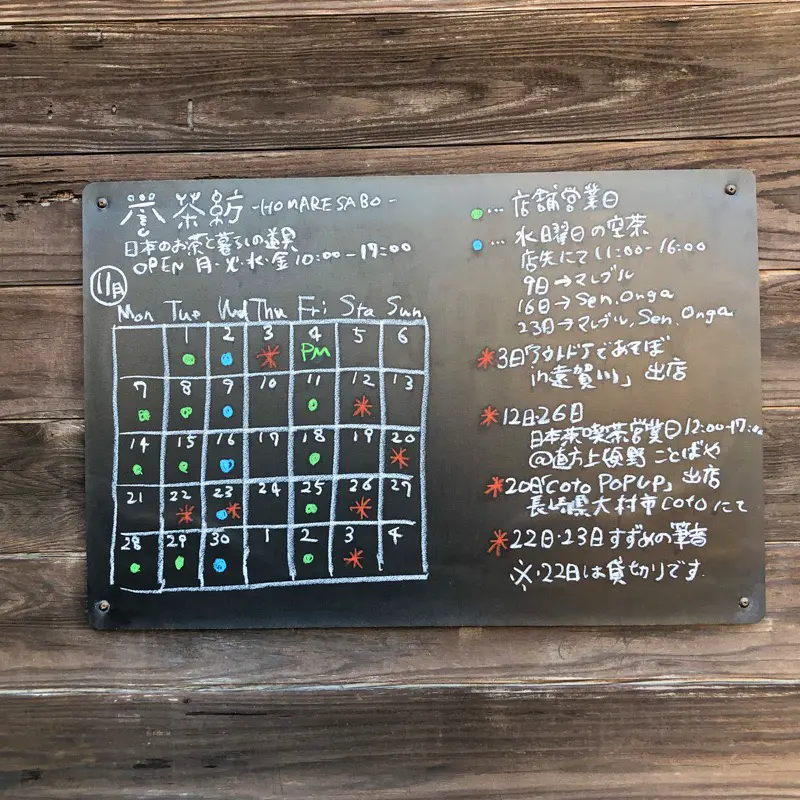 誉茶紡 -HOMARESABO-
日本のお茶と暮らしの道具
OPEN 月・火・水・金 10:00-17:00
11月
Mon Tue Wed Thu Fri Sta Sun
1 2 3 4 5 6
PM
7 8 9 10 11 12 13
14 15 16 17 18 19 20
21 22 23 24 25 26 27
28 29 30 1 2 3 4
… 店舗営業日
… 水曜日の空茶
店先にて11:00-16:00
9日→マレブル
16日→Sen.Onga
23日→マレブル,Sen.Onga
3日「アウトドアであそぼ
in遠賀川」出店
12日・26日
日本茶喫茶営業日12:00-17:00
@直方上頓野 ことばや
20日「Coto POPUP」出店
長崎県大村市Cotoにて
22日・23日すずめの筆香
※・22日は貸切りです.